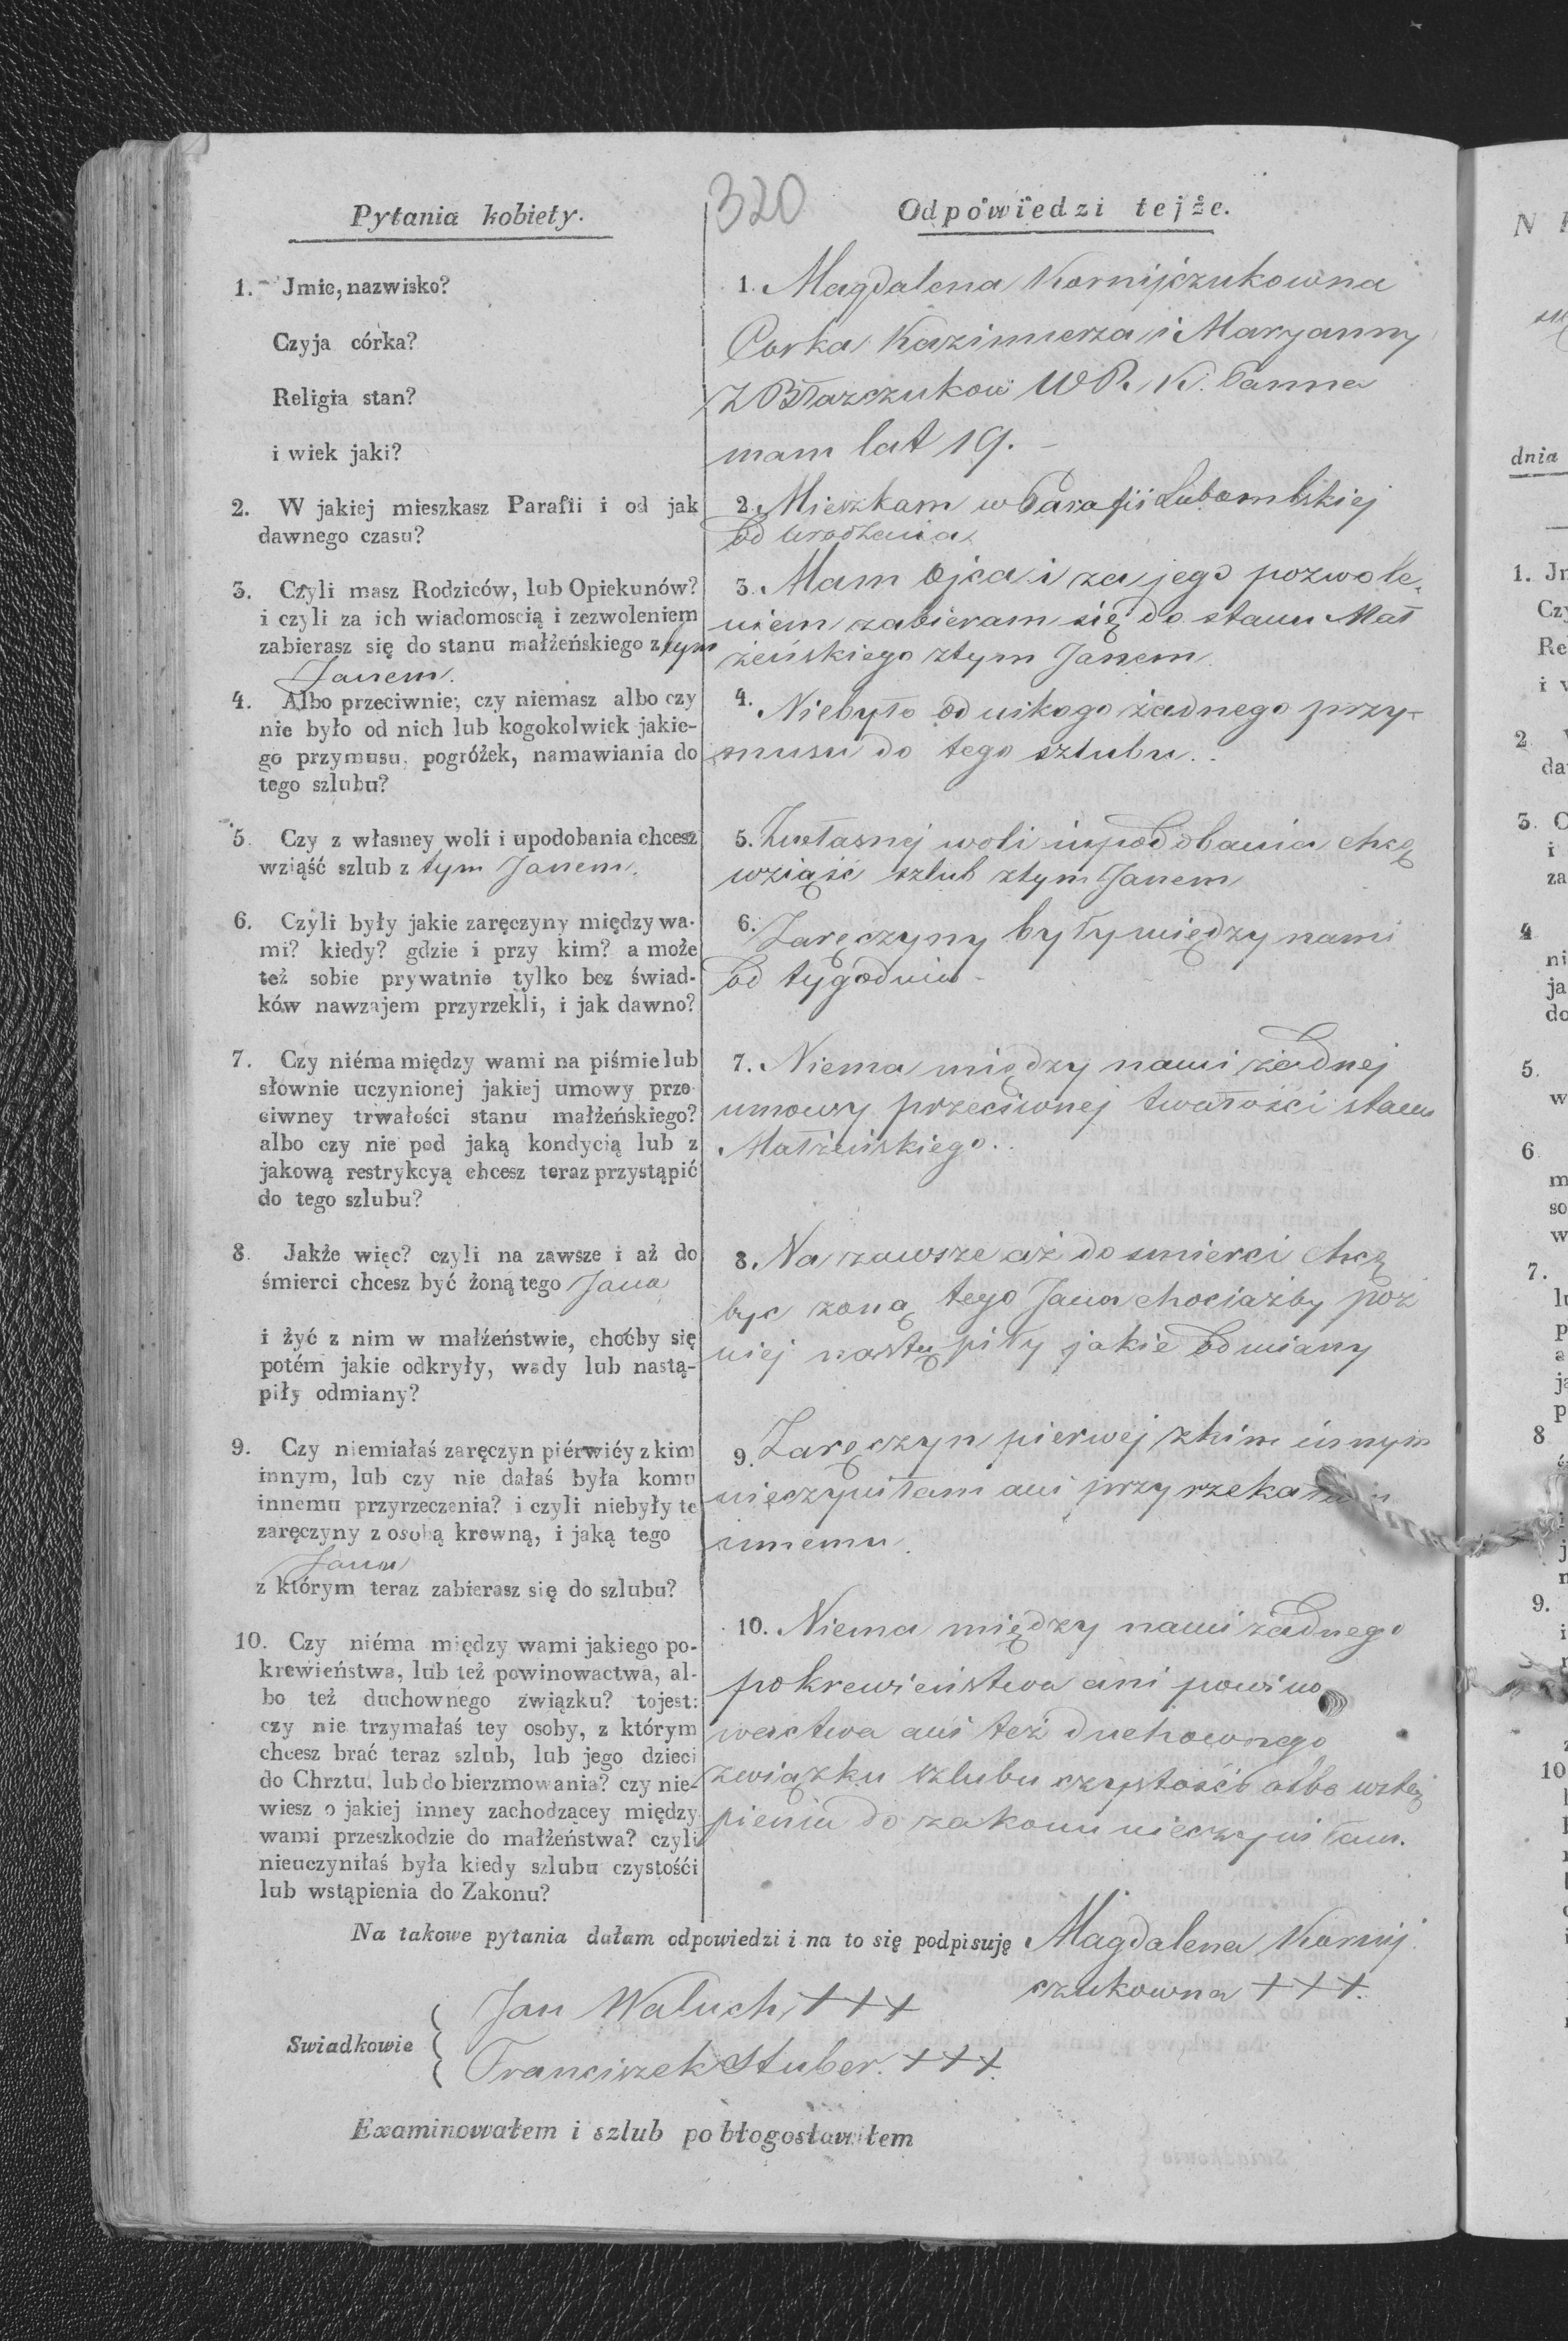 320
Pytania kobiety.
Odpowiedzi tejże.
1. Jmie, nazwisko?
Czyja córka?
Religia stan?
i wiek jaki?
1. Magdalena Kornijczukowna
Corka Kazimierza i Maryanny
Z Błaszczukow W R. K. Panna
mam lat 19.-
2. W jakiej mieszkasz Parafii i od jak
dawnego czasu?
2. Mieszkam w Parafii Lubomlskiej
od urodzenia
3. Czyli masz Rodziców, lub Opiekunów?
i czyli za ich wiadomoscią i zezwoleniem
zabierasz się do stanu małżeńskiego z tym
Janem.
3. Mam Ojca i za jego pozwole-
niem zabieram się do stanu Mał
żeńskiego ztym Janem
4. Albo przeciwnie; czy niemasz albo czy
nie było od nich lub kogokolwiek jakie-
go przymusu, pogróżek, namawiania do
tego szlubu?
4. Niebyło od nikogo żadnego przy-
musu do tego szlubu.
5. Czy z własney woli i upodobania chcesz
wziąść szlub z tym Janem.
5. Zwłasnej woli iupodobania chcę
wziąść szlub ztym Janem
6. Czyli były jakie zaręczyny między wa-
mi? kiedy? gdzie i przy kim? a może
też sobie prywatnie tylko bez świad-
ków nawzajem przyrzekli, i jak dawno?
6. Zaręczyny były między nami
od tygodnia -
7. Czy niéma między wami na piśmie lub
słownie uczynionej jakiej umowy prze-
ciwney trwałości stanu małżeńskiego?
albo czy nie pod jaką kondycią lub z
jakową restrykcyą chcesz teraz przystąpić
do tego szlubu?
7. Niema między nami żadnej
umowy przeciwnej twałości stanu
Małżeńskiego.
8. Jakże więc? czyli na zawsze i aż do
śmierci chcesz być żoną tego Jana
i żyć z nim w małżeństwie, choćby się
potém jakie odkryły, wady lub nastą-
piły odmiany?
8. Na zawsze aż do smierci chcę
byc zoną tego Jana chociażby poz
niej nastąpiły jakie odmiany
9. Czy niemiałaś zaręczyn piérwiéy z kim
innym, lub czy nie dałaś była komu
innemu przyrzeczenia? i czyli niebyły te
zaręczyny z osobą krewną, i jaką tego
Jana
z którym teraz zabierasz się do szlubu?
9. Zaręczyn pierwej zkim innym
nieczyniłam ani przyrzekałam
innemu.
10. Czy niéma między wami jakiego po-
krewieństwa, lub też powinowactwa, al-
bo też duchownego związku? tojest:
czy nie trzymałaś tey osoby, z którym
chcesz brać teraz szlub, lub jego dzieci
do Chrztu, lub do bierzmowania? czy nie-
wiesz o jakiej inney zachodzącey między
wami przeszkodzie do małżeństwa? czyli
nieuczyniłaś była kiedy szlubu czystośći
lub wstąpienia do Zakonu?
10. Niema między nami żadnego
pokrewieństwa ani powino
wactwa ani też duchownego
związku szlubu czystości albo wstą
pienia do zakonu nieczyniłam.
Na takowe pytania dałam odpowiedzi i na to się podpisuję Magdalena Kornij
czukowna +++.
Swiadkowie
Jan Waluch, +++
Franciszek Stuber. +++.
Examinowałem i szlub pobłogosławiłem